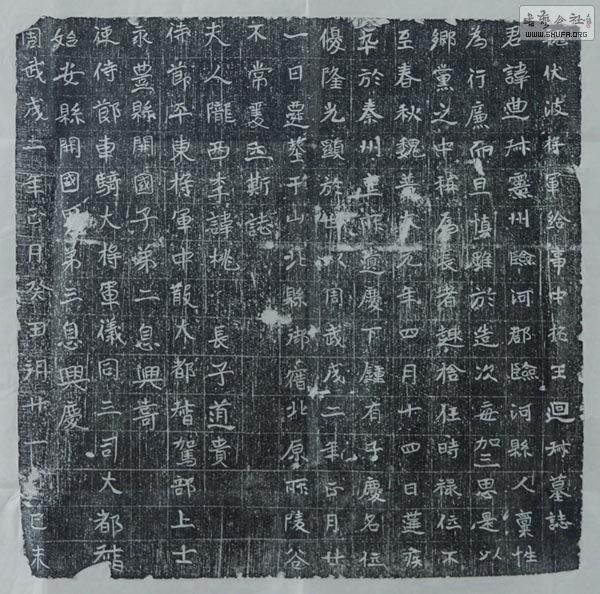 伏波將軍給事中杜王迴墓誌
君諱　州臨河郡臨河縣人稟性
為行廉而且慎雖於造次每加三思是以
鄉黨之中稱為長者　狂時祿位不
至春秋魏普　元年四月十四日遘疾
卒於秦州　慶下鍾有子慶名位
優隆光顯於世以周武成二年正月廿
一日遷塋于山北縣御宿北原　陵谷
不常爰　斯誌
夫人隴西李諱桃　長子道貴
節平東將軍中散大都督駕部上士
永豐縣開國子第二息興壽
使持節車騎大將軍儀同三司大都督
始安縣開國　第三息興慶
周武成二年正月癸丑朔廿一　己未
書法公社
www.SHUFA.ORG